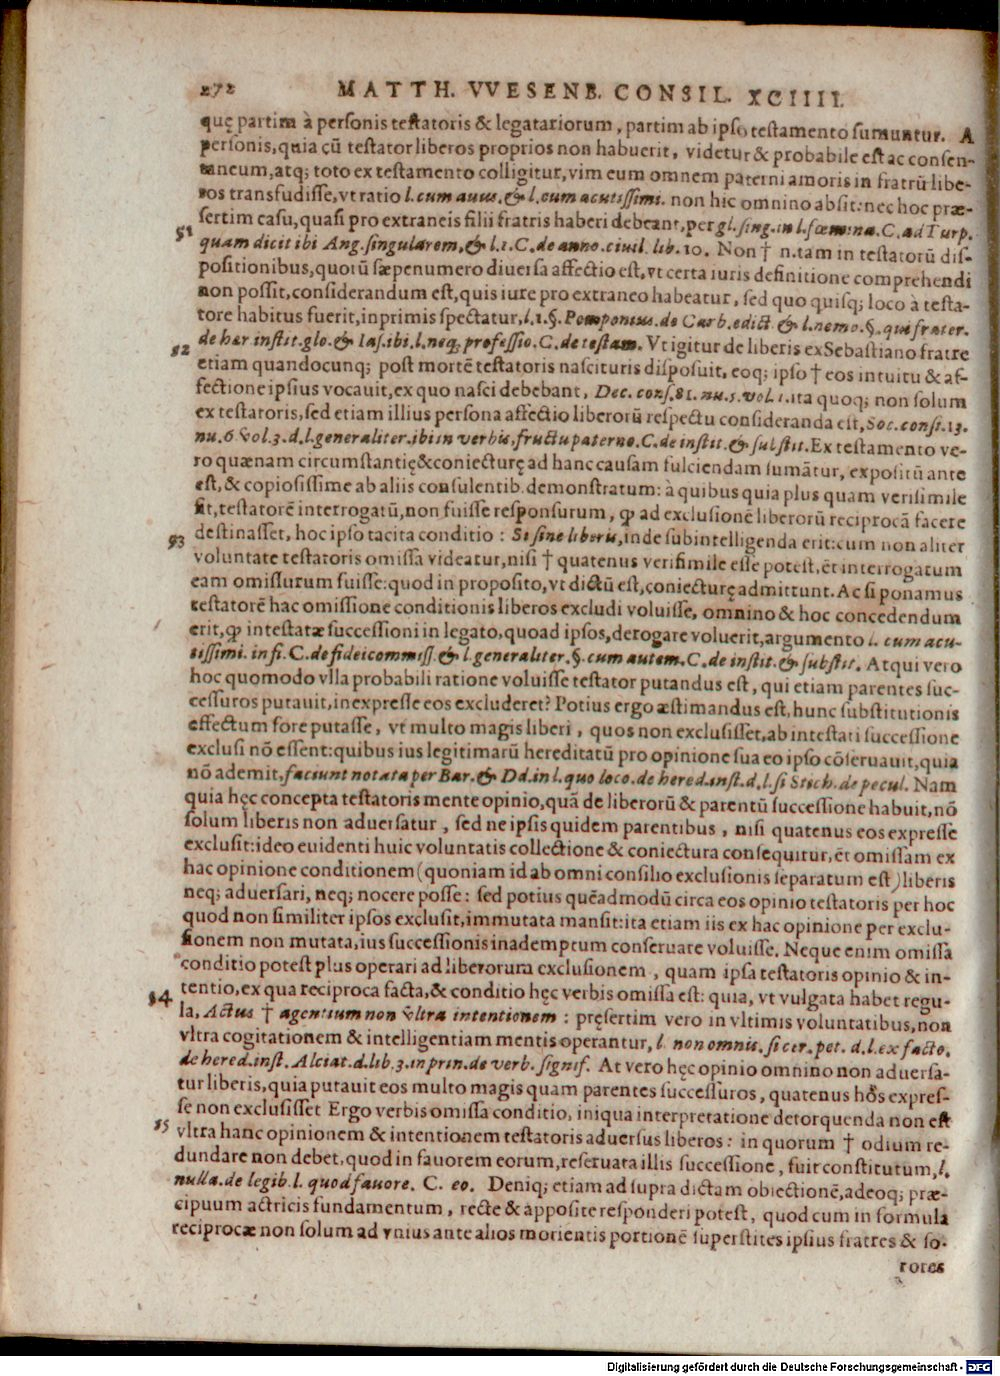 272 MATTH. VVESENB. CONSIL. XCIIII.
quę partim à personis testatoris & legatariorum, partim ab ipso testamento sumuntur. A
personis, quia cū testator liberos proprios non habuerit, videtur & probabile est ac consen-
taneum, atq; toto ex testamento colligitur, vim eum omnem paterni amoris in fratrū libe-
ros transfudisse, vt ratio l. cum auus. & l. cum acutissimi. non hic omnino absit: nec hoc præ-
sertim casu, quasi pro extraneis filii fratris haberi debeant, per gl. sing. in l. fœmina. C. ad Turp.
51 quam dicit ibi Ang. singularem, & l. 1. C. de anno. ciuil. lib. 10. Non † n. tam in testatorū dis-
positionibus, quorū sæpenumero diuersa affectio est, vt certa iuris definitione comprehendi
non possit, considerandum est, quis iure pro extraneo habeatur, sed quo quisq; loco à testa-
tore habitus fuerit, inprimis spectatur, l. 1. §. Pomponius. de Carb. edict. & l. nemo. §. qui frater.
52 de her instit. glo. & Ias. ibi. l. neq. professio. C. de testam. Vt igitur de liberis ex Sebastiano fratre
etiam quandocunq; post mortē testatoris nascituris disposuit, eoq; ipso † eos intuitu & af-
fectione ipsius vocauit, ex quo nasci debebant, Dec. cons. 81. nu. 5. vol. 1. ita quoq; non solum
ex testatoris, sed etiam illius persona affectio liberorū respectu consideranda est, Soc. consi. 13.
nu. 6. vol. 3. d. l. generaliter. ibi in verbis, fructu paterno. C. de instit. & substit. Ex testamento ve-
ro quænam circumstantię & coniecturę ad hanc causam fulciendam sumātur, expositū ante
est, & copiosissime ab aliis consulentib. demonstratum: à quibus quia plus quam verisimile
sit, testatorē interrogatū, non fuisse responsurum, ꝙ ad exclusionē liberorū reciprocā facere
53 destinasset, hoc ipso tacita conditio: Si sine liberis, inde subintelligenda erit: cum non aliter
voluntate testatoris omissa videatur, nisi † quatenus verisimile esse potest, ēt interrogatum
eam omissurum fuisse: quod in proposito, vt dictū est, coniecturę admittunt. Ac si ponamus
testatorē hac omissione conditionis liberos excludi voluisse, omnino & hoc concedendum
erit, ꝙ intestatæ successioni in legato, quoad ipsos, derogare voluerit, argumento l. cum acu-
tissimi. in fi. C. de fideicommiss. & l. generaliter. §. cum autem. C. de instit. & substit. Atqui vero
hoc quomodo vlla probabili ratione voluisse testator putandus est, qui etiam parentes suc-
cessuros putauit, in expresse eos excluderet? Potius ergo æstimandus est, hunc substitutionis
effectum fore putasse, vt multo magis liberi, quos non exclusisset, ab intestati successione
exclusi nō essent: quibus ius legitimarū hereditatū pro opinione sua eo ipso cōseruauit, quia
nō ademit, faciunt notata per Bar. & Dd. in l. quo loco. de hered. inst. d. l. si Stich. de pecul. Nam
quia hęc concepta testatoris mente opinio, quā de liberorū & parentū successione habuit, nō
solum liberis non aduersatur, sed ne ipsis quidem parentibus, nisi quatenus eos expresse
exclusit: ideo euidenti huic voluntatis collectione & coniectura consequitur, ēt omissam ex
hac opinione conditionem (quoniam id ab omni consilio exclusionis separatum est) liberis
neq; aduersari, neq; nocere posse: sed potius quēadmodū circa eos opinio testatoris per hoc
quod non similiter ipsos exclusit, immutata mansit: ita etiam iis ex hac opinione per exclu-
sionem non mutata, ius successionis inademptum conseruare voluisse. Neque enim omissa
conditio potest plus operari ad liberorum exclusionem, quam ipsa testatoris opinio & in-
54 tentio, ex qua reciproca facta, & conditio hęc verbis omissa est: quia, vt vulgata habet regu-
la, Actus † agentium non vltra intentionem: pręsertim vero in vltimis voluntatibus, non
vltra cogitationem & intelligentiam mentis operantur, l. non omnis. si cer. pet. d. l. ex facto.
de hered. inst. Alciat. d. lib. 3. in prin. de verb. signif. At vero hęc opinio omnino non aduersa-
tur liberis, quia putauit eos multo magis quam parentes successuros, quatenus hos expres-
se non exclusisset Ergo verbis omissa conditio, iniqua interpretatione detorquenda non est
55 vltra hanc opinionem & intentionem testatoris aduersus liberos: in quorum † odium re-
dundare non debet, quod in fauorem eorum, reseruata illis successione, fuit constitutum, l.
nulla. de legib. l. quod fauore. C. eo. Deniq; etiam ad supra dictam obiectionē, adeoq; præ-
cipuum actricis fundamentum, recte & apposite responderi potest, quod cum in formula
reciprocæ non solum ad vnius ante alios morientis portionē superstites ipsius fratres & so-
rores
Digitalisierung gefördert durch die Deutsche Forschungsgemeinschaft - DFG